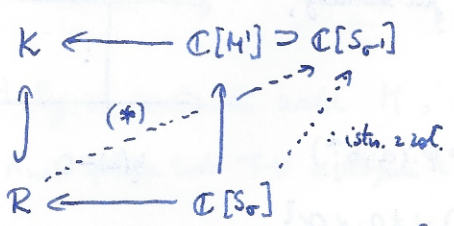 K ← ℂ[M'] ⊃ ℂ[S_σ']
(*)
istn. z zał.
R ← ℂ[S_σ]